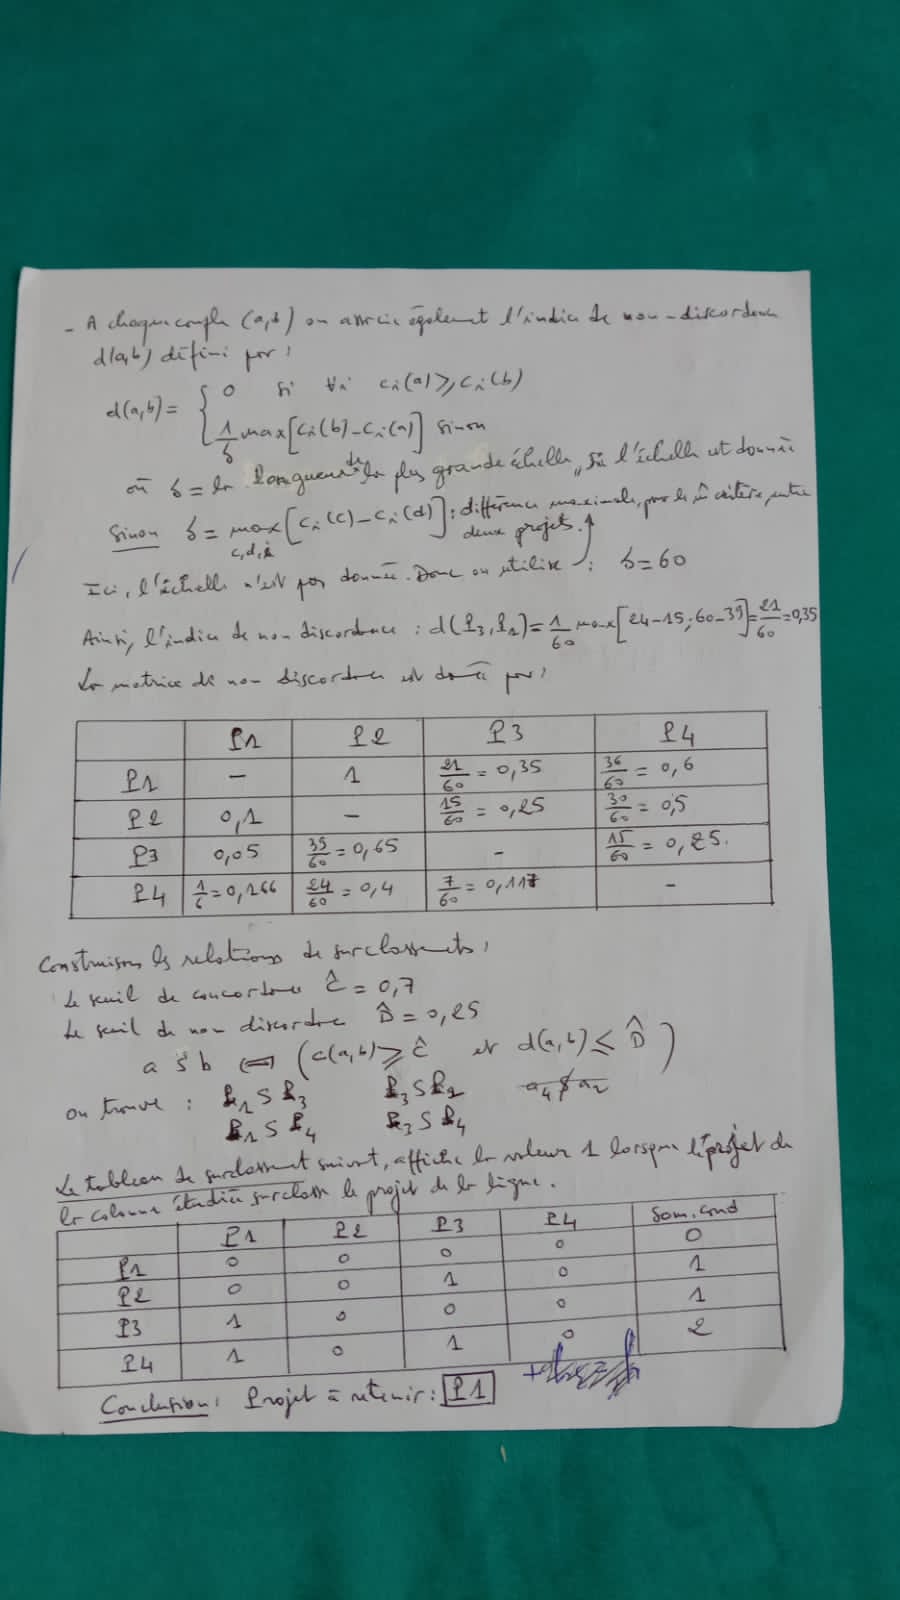 - A chaque couple (a,b) on associe également l'indice de non-discordance
d(a,b) défini par :
d(a,b) = { 0 si ∀i ci(a) ≥ ci(b)
1/δ max[ci(b) - ci(a)] sinon
où δ = la longueur de la plus grande échelle, si l'échelle est donnée
Sinon δ = max c,d,i [ci(c) - ci(d)] : différence maximale, pour le m̂ critère, entre
deux projets.
Ici, l'échelle n'est pas donnée. Donc on utilise : δ = 60
Ainsi, l'indice de non discordance : d(P3,P1) = 1/60 max[24-15 ; 60-39] = 21/60 = 0,35
La matrice de non discordance est donnée par :
P1 P2 P3 P4
P1 - 1 21/60 = 0,35 36/60 = 0,6
P2 0,1 - 15/60 = 0,25 30/60 = 0,5
P3 0,05 39/60 = 0,65 - 15/60 = 0,25.
P4 1/6 = 0,166 24/60 = 0,4 7/60 = 0,117 -
Construisons les relations de surclassements :
Le seuil de concordance Ĉ = 0,7
Le seuil de non discordance D̂ = 0,25
a S b ⟺ (c(a,b) ≥ Ĉ et d(a,b) ≤ D̂)
on trouve : P1 S P3 P3 S P2
P1 S P4 P3 S P4
Le tableau de surclassement suivant, affiche la valeur 1 lorsque le projet de
la colonne étudiée surclasse le projet de la ligne.
P1 P2 P3 P4 Som. cond
P1 0 0 0 0 0
P2 0 0 1 0 1
P3 1 0 0 0 1
P4 1 0 1 0 2
Conclusion : Projet à retenir : P1